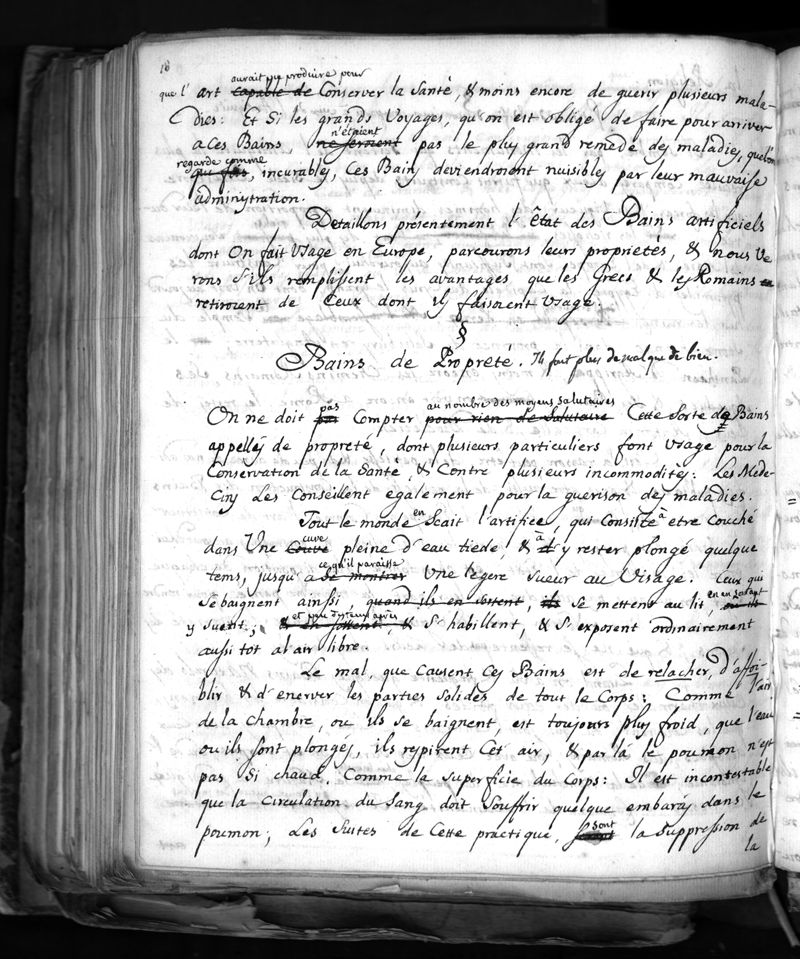 16
aurait pu produire pour
que l' art capable de Conserver la Santé, & moins encore de guerir plusieurs mala-
dies: Et Si les grands Voyages, qu'on est obligé de faire pour arriver
a Ces Bains, n'étoient ne seroient pas le plus grand remede des maladies, quel'on
regarde comme
incurables, Ces Bains deviendroient nuisibles par leur mauvaise
administration.
Detaillons présentement l'êtat des Bains artificiels
dont On fait Usage en Europe, parcourons leurs proprietés, & nous Ve
rons S'ils remplissent les avantages que les Grecs & les Romains
retiroient de Ceux dont ils faisoient Usage.
§
Bains de Propreté. Ils font plus de mal que de bien.
pas au nombre des moyens Salutaires
On ne doit pas Compter pour rien de Salutaire Cette Sorte de Bains
appellés de propreté, dont plusieurs particuliers font Usage pour la
Conservation de la Santé, & Contre plusieurs incommodités: Les Mede-
Cins Les Conseillent également pour la guerison des maladies.
Tout le monde en Scait l'artifice, qui Consiste à etre Couché
cuve à
dans Une Couve pleine d'eau tiede, & d' y rester plongé quelque
ce qu'il paraisse
tems, jusqu'a Se montrer Une legere Sueur au Visage. Ceux qui
en en sortant
Se baignent ainssi, quand ils en sortent, ils se mettent au lit,
et peu de tems après
y Suent; & en sortent, & S'habillent, & S'exposent ordinairement
aussi tot a l'air libre.
Le mal, que Causent Ces Bains est de relacher, d'affoi-
blir & d'enerver les parties Solides de tout le Corps: Comme l'air
de la Chambre, ou ils se baignent, est toujours plus froid, que l'eau
ou ils sont plongés, ils respirent Cét air, & par là le poumon n'est
pas Si chaud, Comme la Superficie du Corps: Il est incontestable
que la Circulation du Sang doit Souffrir quelque embaras dans le
poumon; Les Suites de Cette practique, sont la Suppression de
la